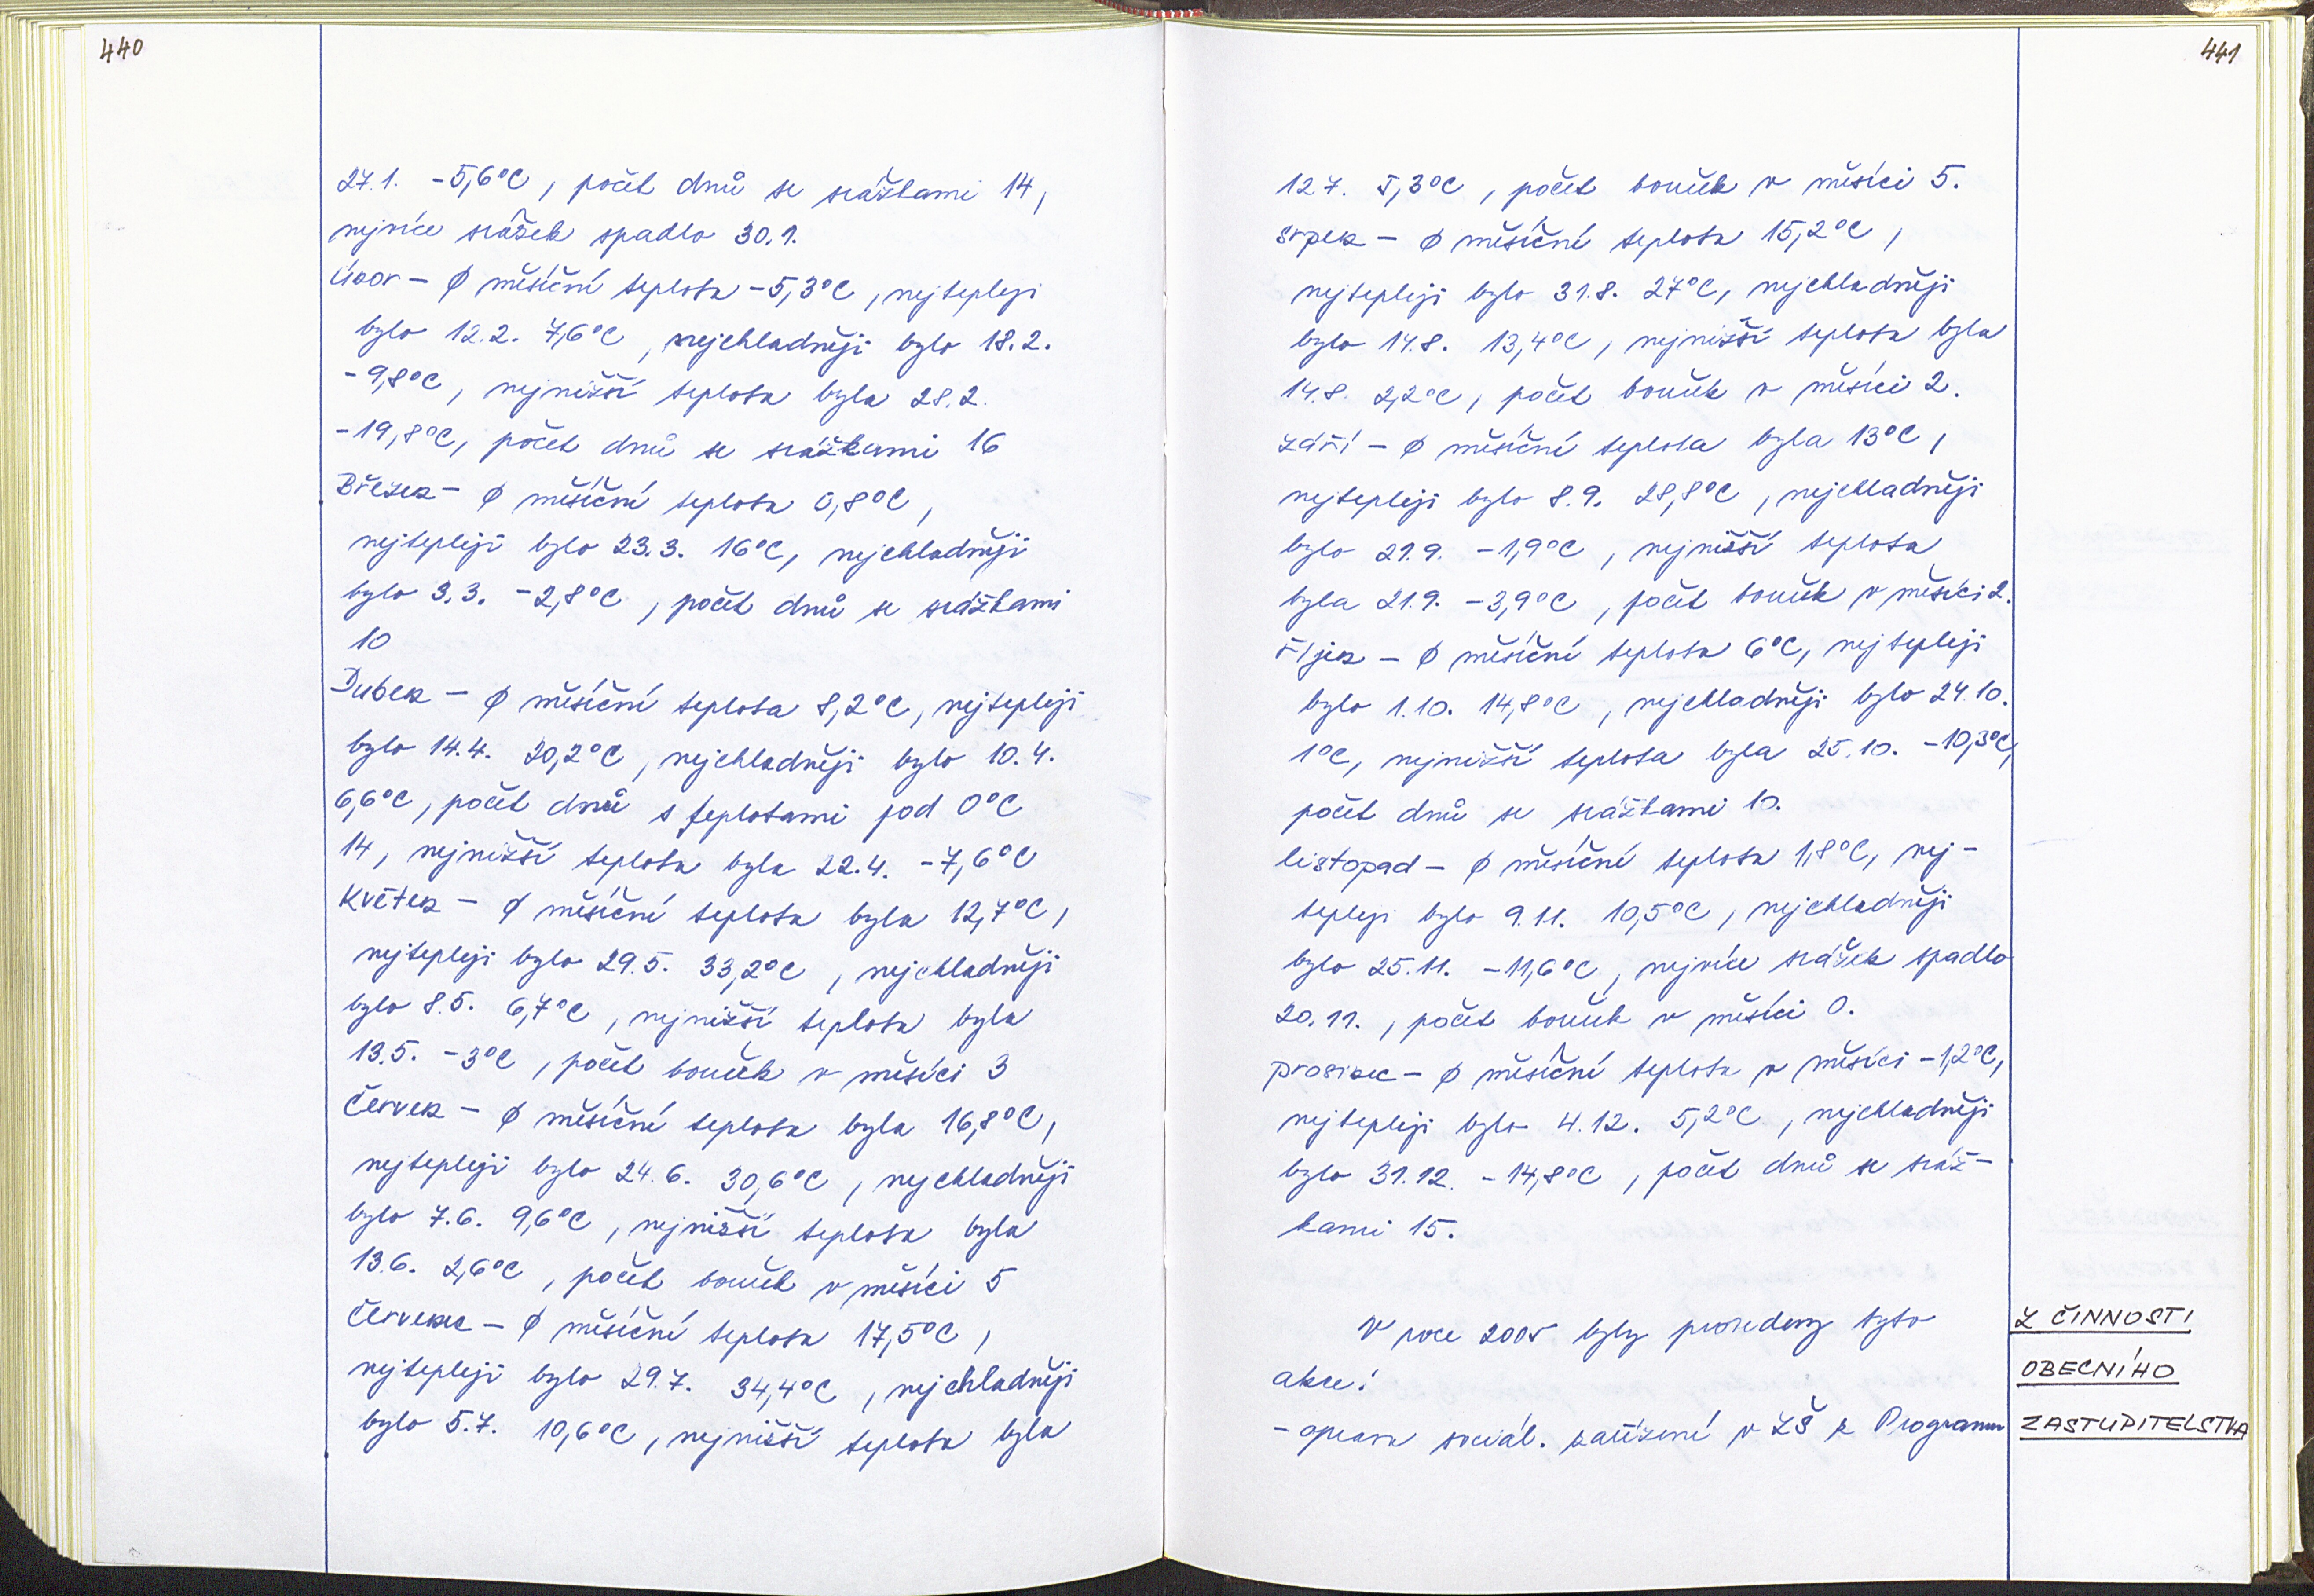 440
27.1. -5,6°C, počet dnů se srážkami 14,
nejvíce srážek spadlo 30.1.
únor - ϕ měsíční teplota -5,3°C, nejtepleji
bylo 12.2. 7,6°C, nejchladněji bylo 18.2.
-9,8°C, nejnižší teplota byla 28.2.
-19,8°C, počet dnů se srážkami 16
Březen - ϕ měsíční teplota 0,8°C,
nejtepleji bylo 23.3. 16°C, nejchladněji
bylo 3.3. -2,8°C, počet dnů se srážkami
10
Duben - ϕ měsíční teplota 8,2°C, nejtepleji
bylo 14.4. 20,2°C, nejchladněji bylo 10.4.
6,6°C, počet dnů s teplotami pod 0°C
14, nejnižší teplota byla 22.4. -7,6°C
Květen - ϕ měsíční teplota byla 12,7°C,
nejtepleji bylo 29.5. 33,2°C, nejchladněji
bylo 8.5. 6,7°C, nejnižší teplota byla
13.5. -3°C, počet bouřek v měsíci 3
Červen - ϕ měsíční teplota byla 16,8°C,
nejtepleji bylo 24.6. 30,6°C, nejchladněji
bylo 7.6. 9,6°C, nejnižší teplota byla
13.6. 2,6°C, počet bouřek v měsíci 5
Červenec - ϕ měsíční teplota 17,5°C,
nejtepleji bylo 29.7. 34,4°C, nejchladněji
bylo 5.7. 10,6°C, nejnižší teplota byla
441
12.7. 5,3°C, počet bouřek v měsíci 5.
srpen - ϕ měsíční teplota 15,2°C,
nejtepleji bylo 31.8. 27°C, nejchladněji
bylo 14.8. 13,4°C, nejnižší teplota byla
14.8. 2,2°C, počet bouřek v měsíci 2.
září - ϕ měsíční teplota byla 13°C,
nejtepleji bylo 8.9. 28,8°C, nejchladněji
bylo 21.9. -1,9°C, nejnižší teplota
byla 21.9. -3,9°C, počet bouřek v měsíci 2.
říjen - ϕ měsíční teplota 6°C, nejtepleji
bylo 1.10. 14,8°C, nejchladněji bylo 24.10.
1°C, nejnižší teplota byla 25.10. -10,3°C,
počet dnů se srážkami 10.
listopad - ϕ měsíční teplota 1,8°C, nej-
tepleji bylo 9.11. 10,5°C, nejchladněji
bylo 25.11. -11,6°C, nejvíce srážek spadlo
20.11., počet bouřek v měsíci 0.
prosinec - ϕ měsíční teplota v měsíci -1,2°C,
nejtepleji bylo 4.12. 5,2°C, nejchladněji
bylo 31.12. -14,8°C, počet dnů se sráž-
kami 15.
V roce 2005 byly provedeny tyto
akce:
- oprava sociál. zařízení v ZŠ z Programu
Z ČINNOSTI
OBECNÍHO
ZASTUPITELSTVA